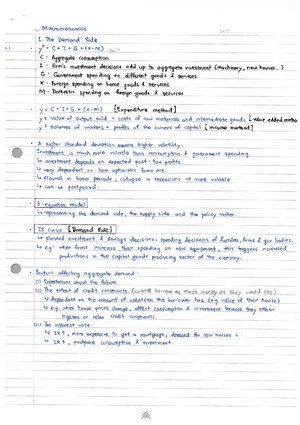 Macroeconomics
1. The Demand Side
y = C + I + G + (X-M)
C : Aggregate consumption
I : Firm's investment decisions add up to aggregate investment (machinery, new houses..)
G : Government spending on different goods & services
X : Foreign spending on home goods & services
M : Domestic spending on foreign goods & services
y = C + I + G + (X-M) [Expenditure method]
y = value of output sold - costs of raw materials and intermediate goods [value added method]
y = salaries of workers + profits of the owners of capital [income method]
A higher standard deviation means higher volatility.
Investment is much more volatile than consumption & government spending.
↳ investment depends on expected post-tax profits
↳ very dependent on how optimistic firms are.
↳ flourish in boom periods, collapse in recessions → more volatile
↳ can be postponed
3-equation model
↳ representing the demand side, the supply side and the policy maker.
IS curve [Demand Side]
↳ planned investment & savings decisions; spending decisions of families, firms & gov. bodies.
↳ e.g. when firms increase their spending on new equipment, this triggers increased
productions in the capital goods producing sector of the economy.
Factors affecting aggregate demand :
(i) Expectations about the future.
(ii) The extent of credit constraints. (cannot borrow as much money as they would like)
↳ dependent on the amount of collateral the borrower has. (e.g. value of their house)
↳ e.g. when house prices change, affect consumption & investment because they either
tighten or relax credit constraints.
(iii) The interest rate.
↳ IR ↑, more expensive to get a mortgage, demand for new houses ↓
↳ IR ↑, postpone consumption & investment.